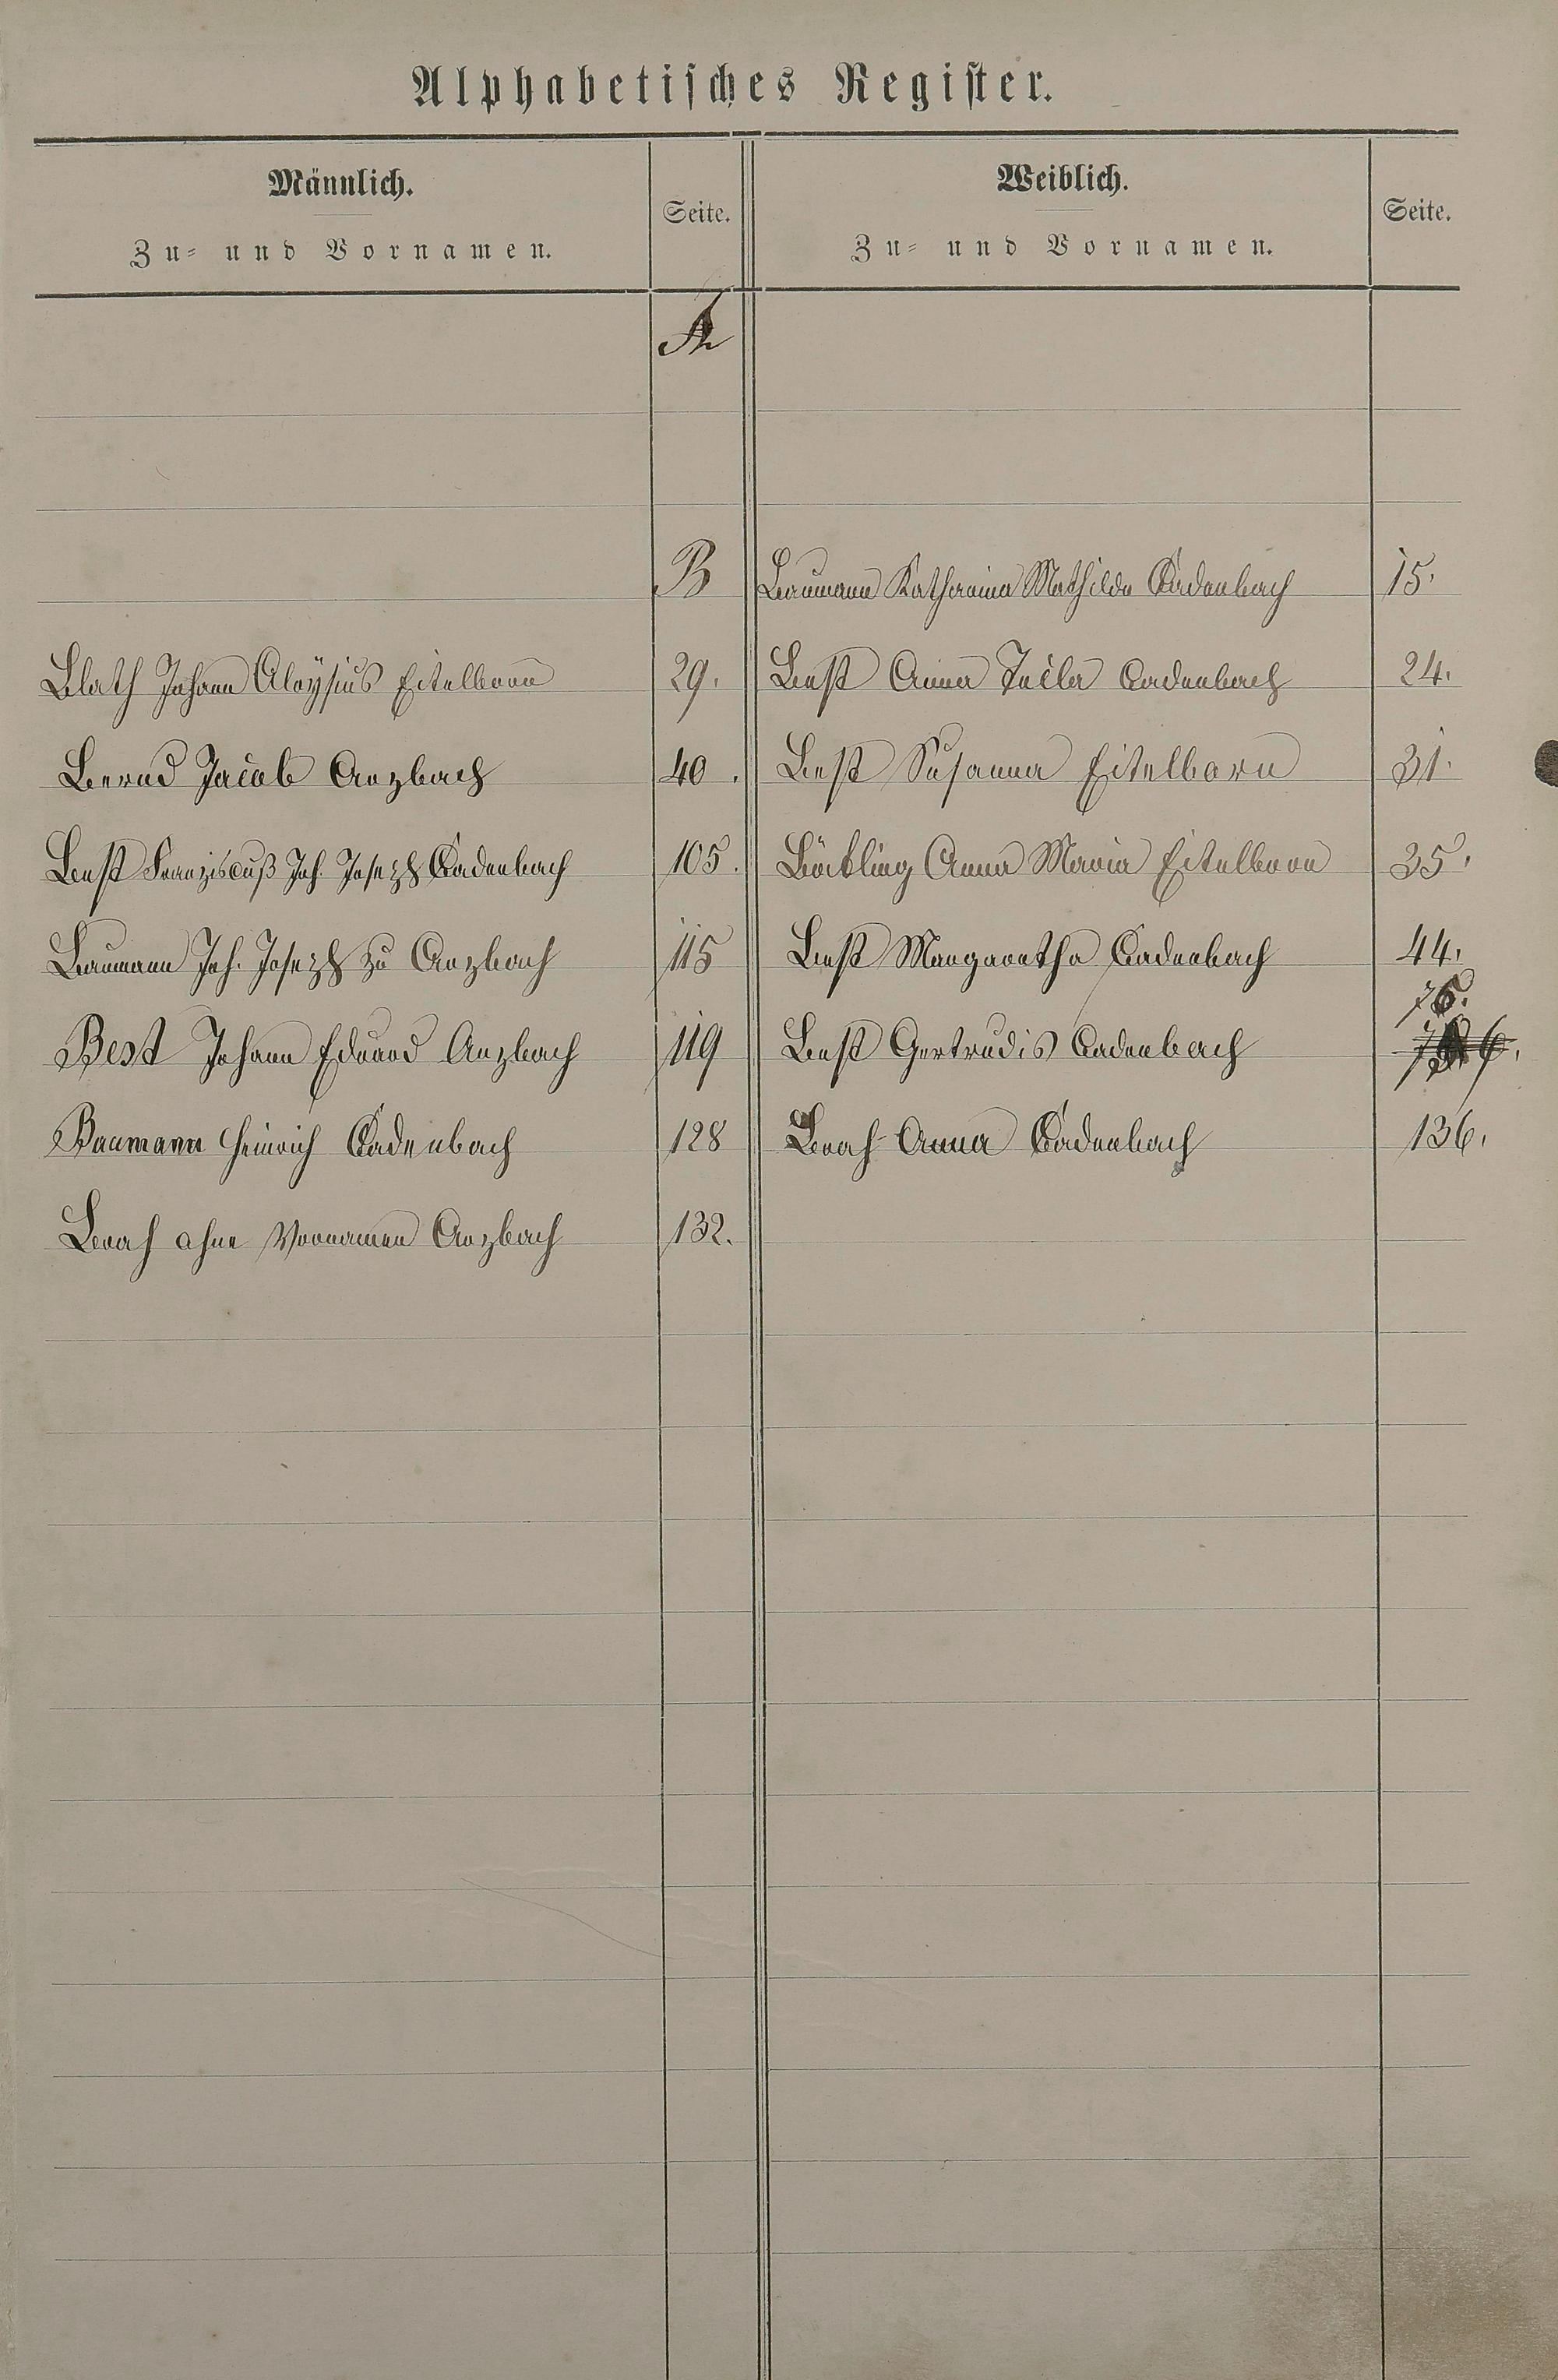 Alphabetisches Register.
Männlich. Seite. Weiblich. Seite.
Zu- und Vornamen. Zu- und Vornamen.
A
B Baumann Katharina Mathilde Cadenbach 15.
Blath Johann Aloÿsius Eitelborn 29. Best Anna Tecla Cadenbach 24.
Bernd Jacob Arzbach 40. Best Susanna Eitelborn 31.
Best Franziscuß Joh. Joseph Cadenbach 105. Böckling Anna Maria Eitelborn 35.
Baumann Joh. Joseph zu Arzbach 115 Best Margaretha Cadenbach 44.
76.
Best Johann Eduard Arzbach 119 Best Gertrudis Cadenbach
Baumann Heinrich Cadenbach 128 Bach Anna Cadenbach 136.
Bach ohne Vornamen Arzbach 132.